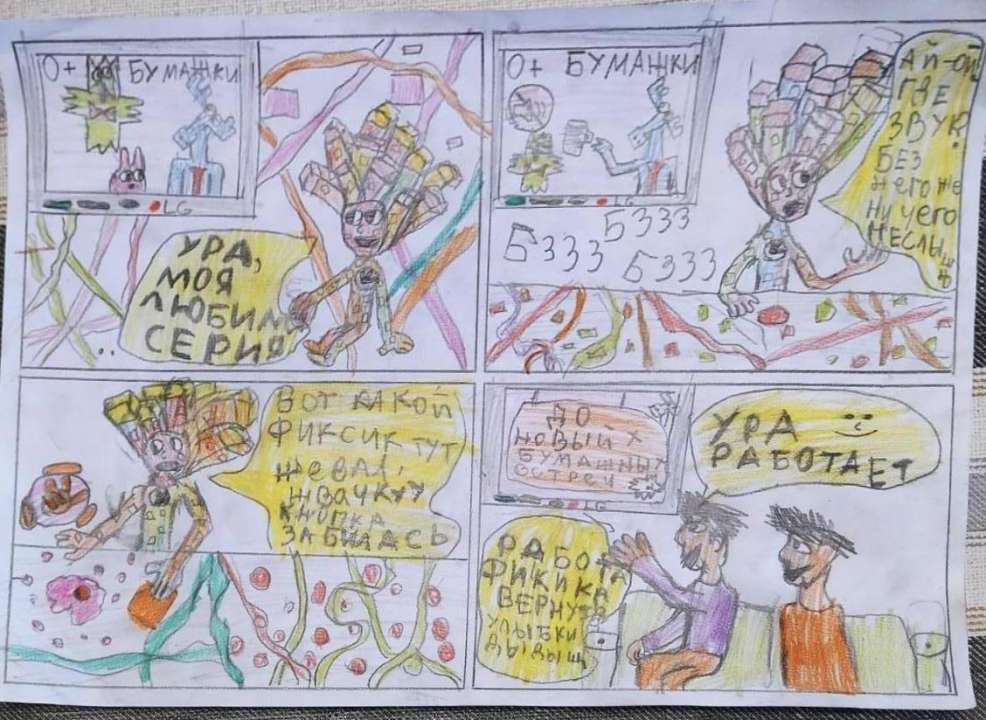 0+ БУМАЖКИ
LG
УРА,
МОЯ
ЛЮБИМА
СЕРИЯ
0+ БУМАЖКИ
LG
АЙ-ОЙ
ГДЕ
ЗВУК?
БЕЗ
НЕГО ЖЕ
НИЧЕГО
НЕСЛЫШ
БЗЗЗ
БЗЗЗ
БЗЗЗ
ВОТ КАКОЙ
ФИКСИК ТУТ
ЖЕВАЛ,
ЖВАЧКУ
КНОПКА
ЗАБИЛАСЬ
ДО
НОВЫЙХ
БУМАЖНЫХ
ВСТРЕЧ
LG
УРА
РАБОТАЕТ
РАБОТА
ФИКИКА
ВЕРНУТЬ
УЛЫБКИ
ДЫДЫЩ